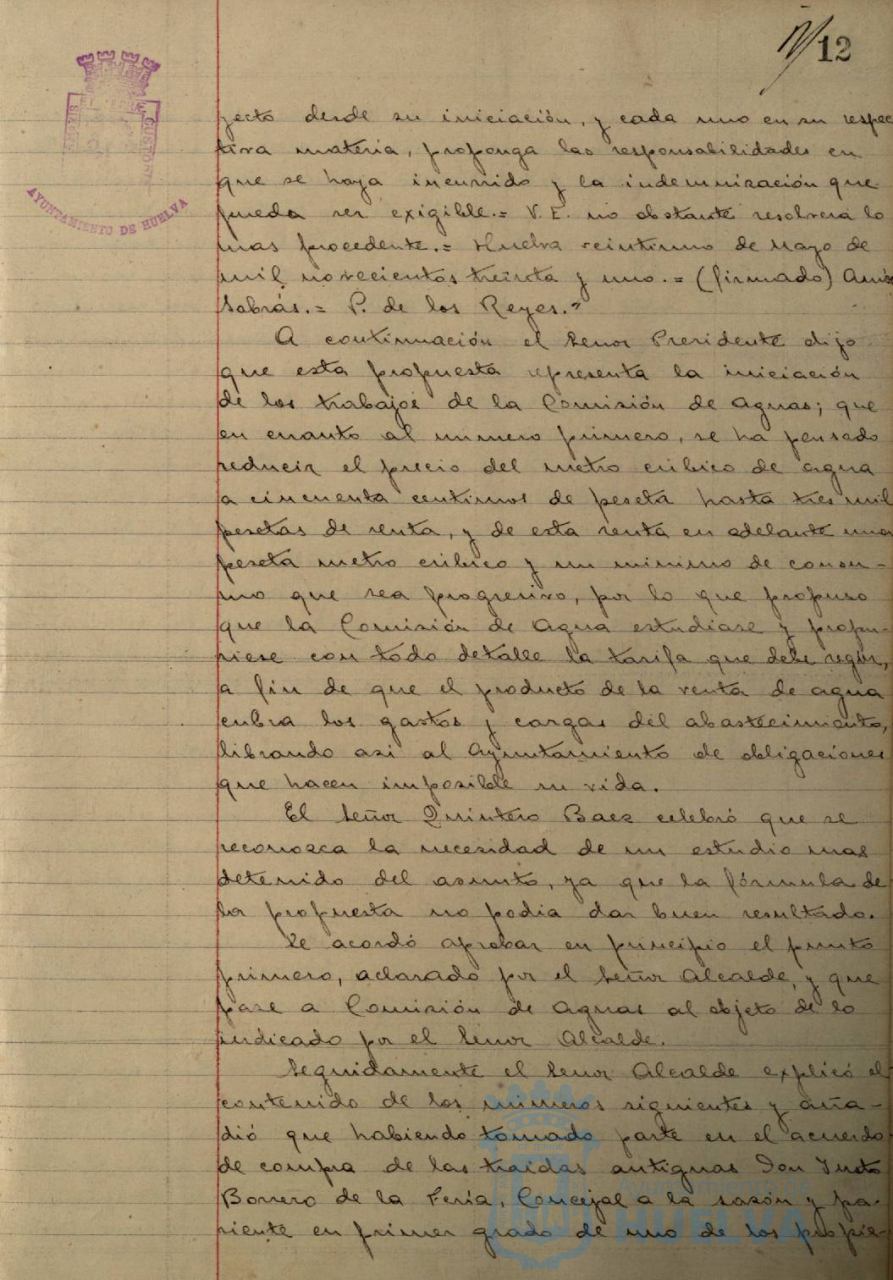 12
AYUNTAMIENTO DE HUELVA
yecto desde su iniciación, y cada uno en su respec
tiva materia, proponga las responsabilidades en
que se haya incurrido y la indemnización que
pueda ser exigible.= V.E. no obstante resolverá lo
mas procedente.= Huelva veintiuno de Mayo de
mil novecientos treinta y uno.= (firmado) Amós
Sabrás.= P. de los Reyes."
A continuación el Señor Presidente dijo
que esta propuesta representa la iniciación
de los trabajos de la Comisión de Aguas; que
en cuanto al número primero, se ha pensado
reducir el precio del metro cúbico de agua
a cincuenta centimos de peseta hasta tres mil
pesetas de renta, y de esta renta en adelante una
peseta metro cúbico y un minimo de consu-
mo que sea progresivo, por lo que propuso
que la Comisión de Agua estudiase y propu-
siese con todo detalle la tarifa que debe regir,
a fin de que el producto de la venta de agua
cubra los gastos y cargas del abastecimiento,
librando asi al Ayuntamiento de obligaciones
que hacen imposible su vida.
El Señor Quintero Baez celebró que se
reconozca la necesidad de un estudio mas
detenido del asunto, ya que la fórmula de
la propuesta no podia dar buen resultado.
Se acordó aprobar en principio el punto
primero, aclarado por el Señor Alcalde, y que
pase a Comisión de Aguas al objeto de lo
indicado por el Señor Alcalde.
Seguidamente el Señor Alcalde explicó el
contenido de los números siguientes y aña-
dió que habiendo tomado parte en el acuerdo
de compra de las traidas antiguas Don Justo
Borrero de la Feria, Concejal a la sazón y pa-
riente en primer grado de uno de los propie-
Ayuntamiento de
HUELVA